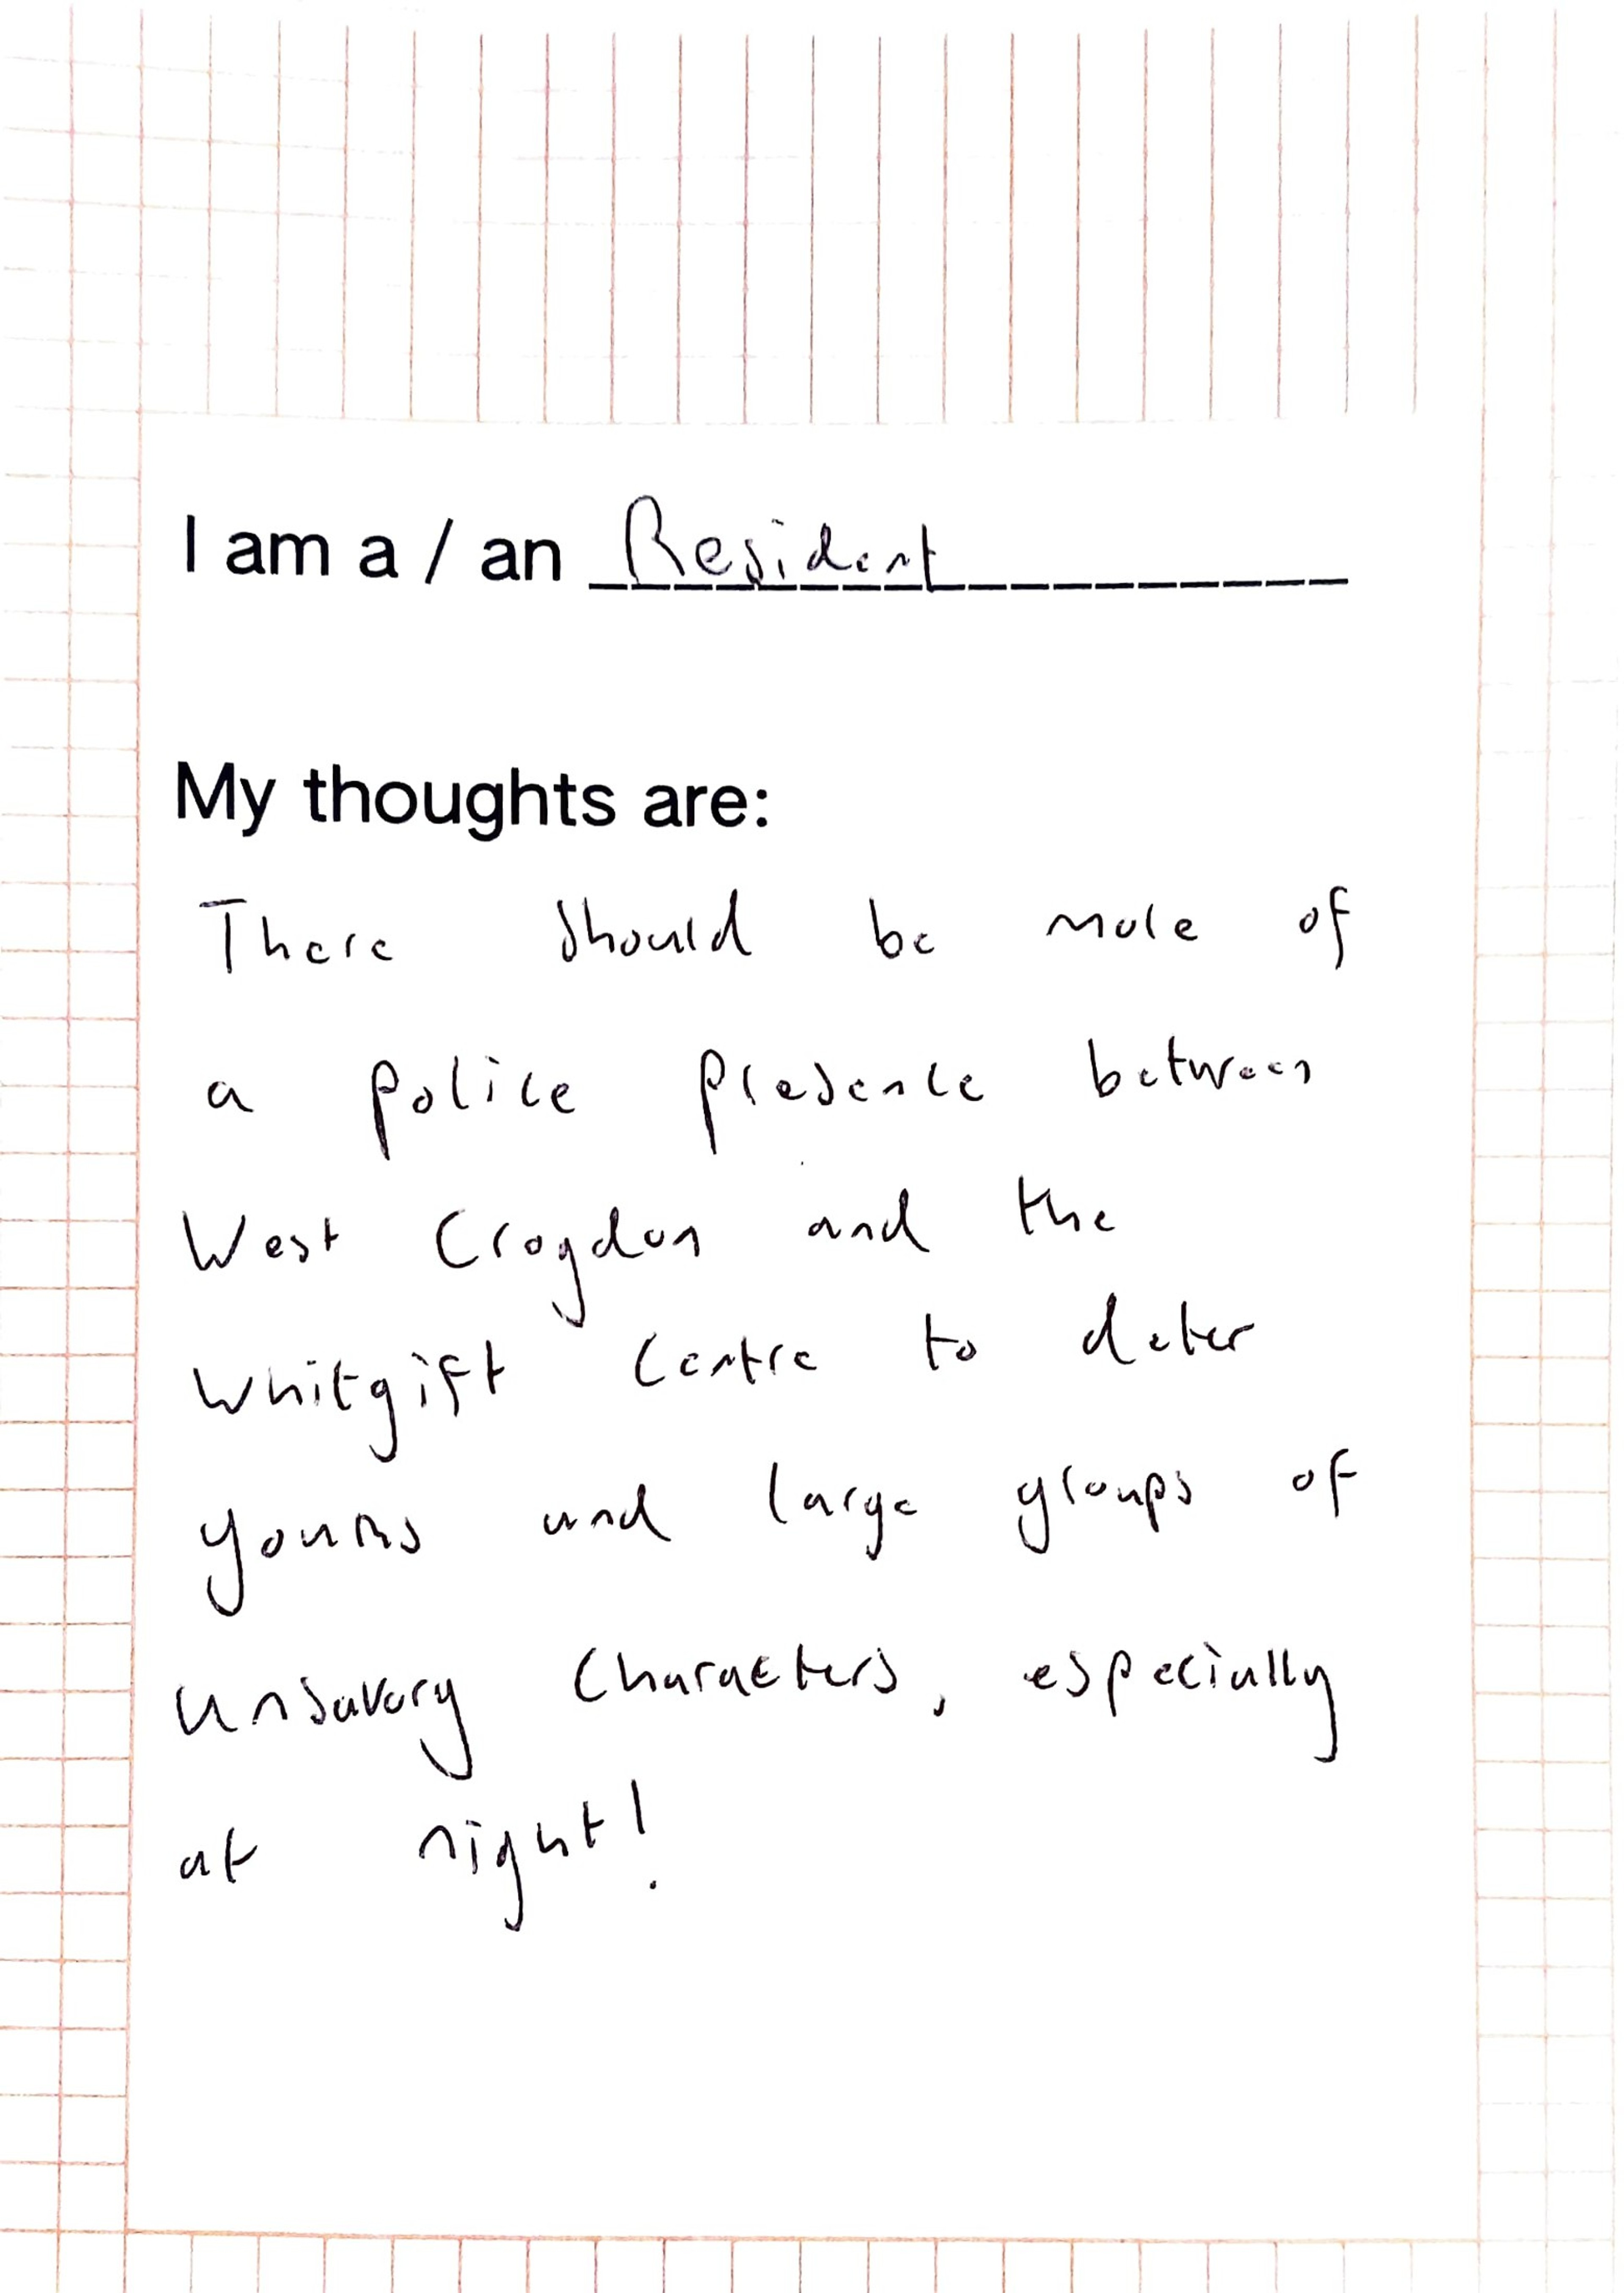 I am a / an Resident
My thoughts are:
There should be more of
a police presence between
West Croydon and the
Whitgift Centre to deter
youths and large groups of
unsavory characters, especially
at night!